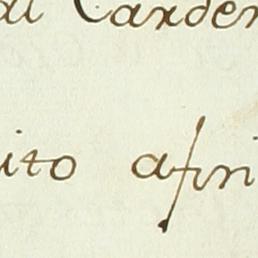 al Carden
ito afin